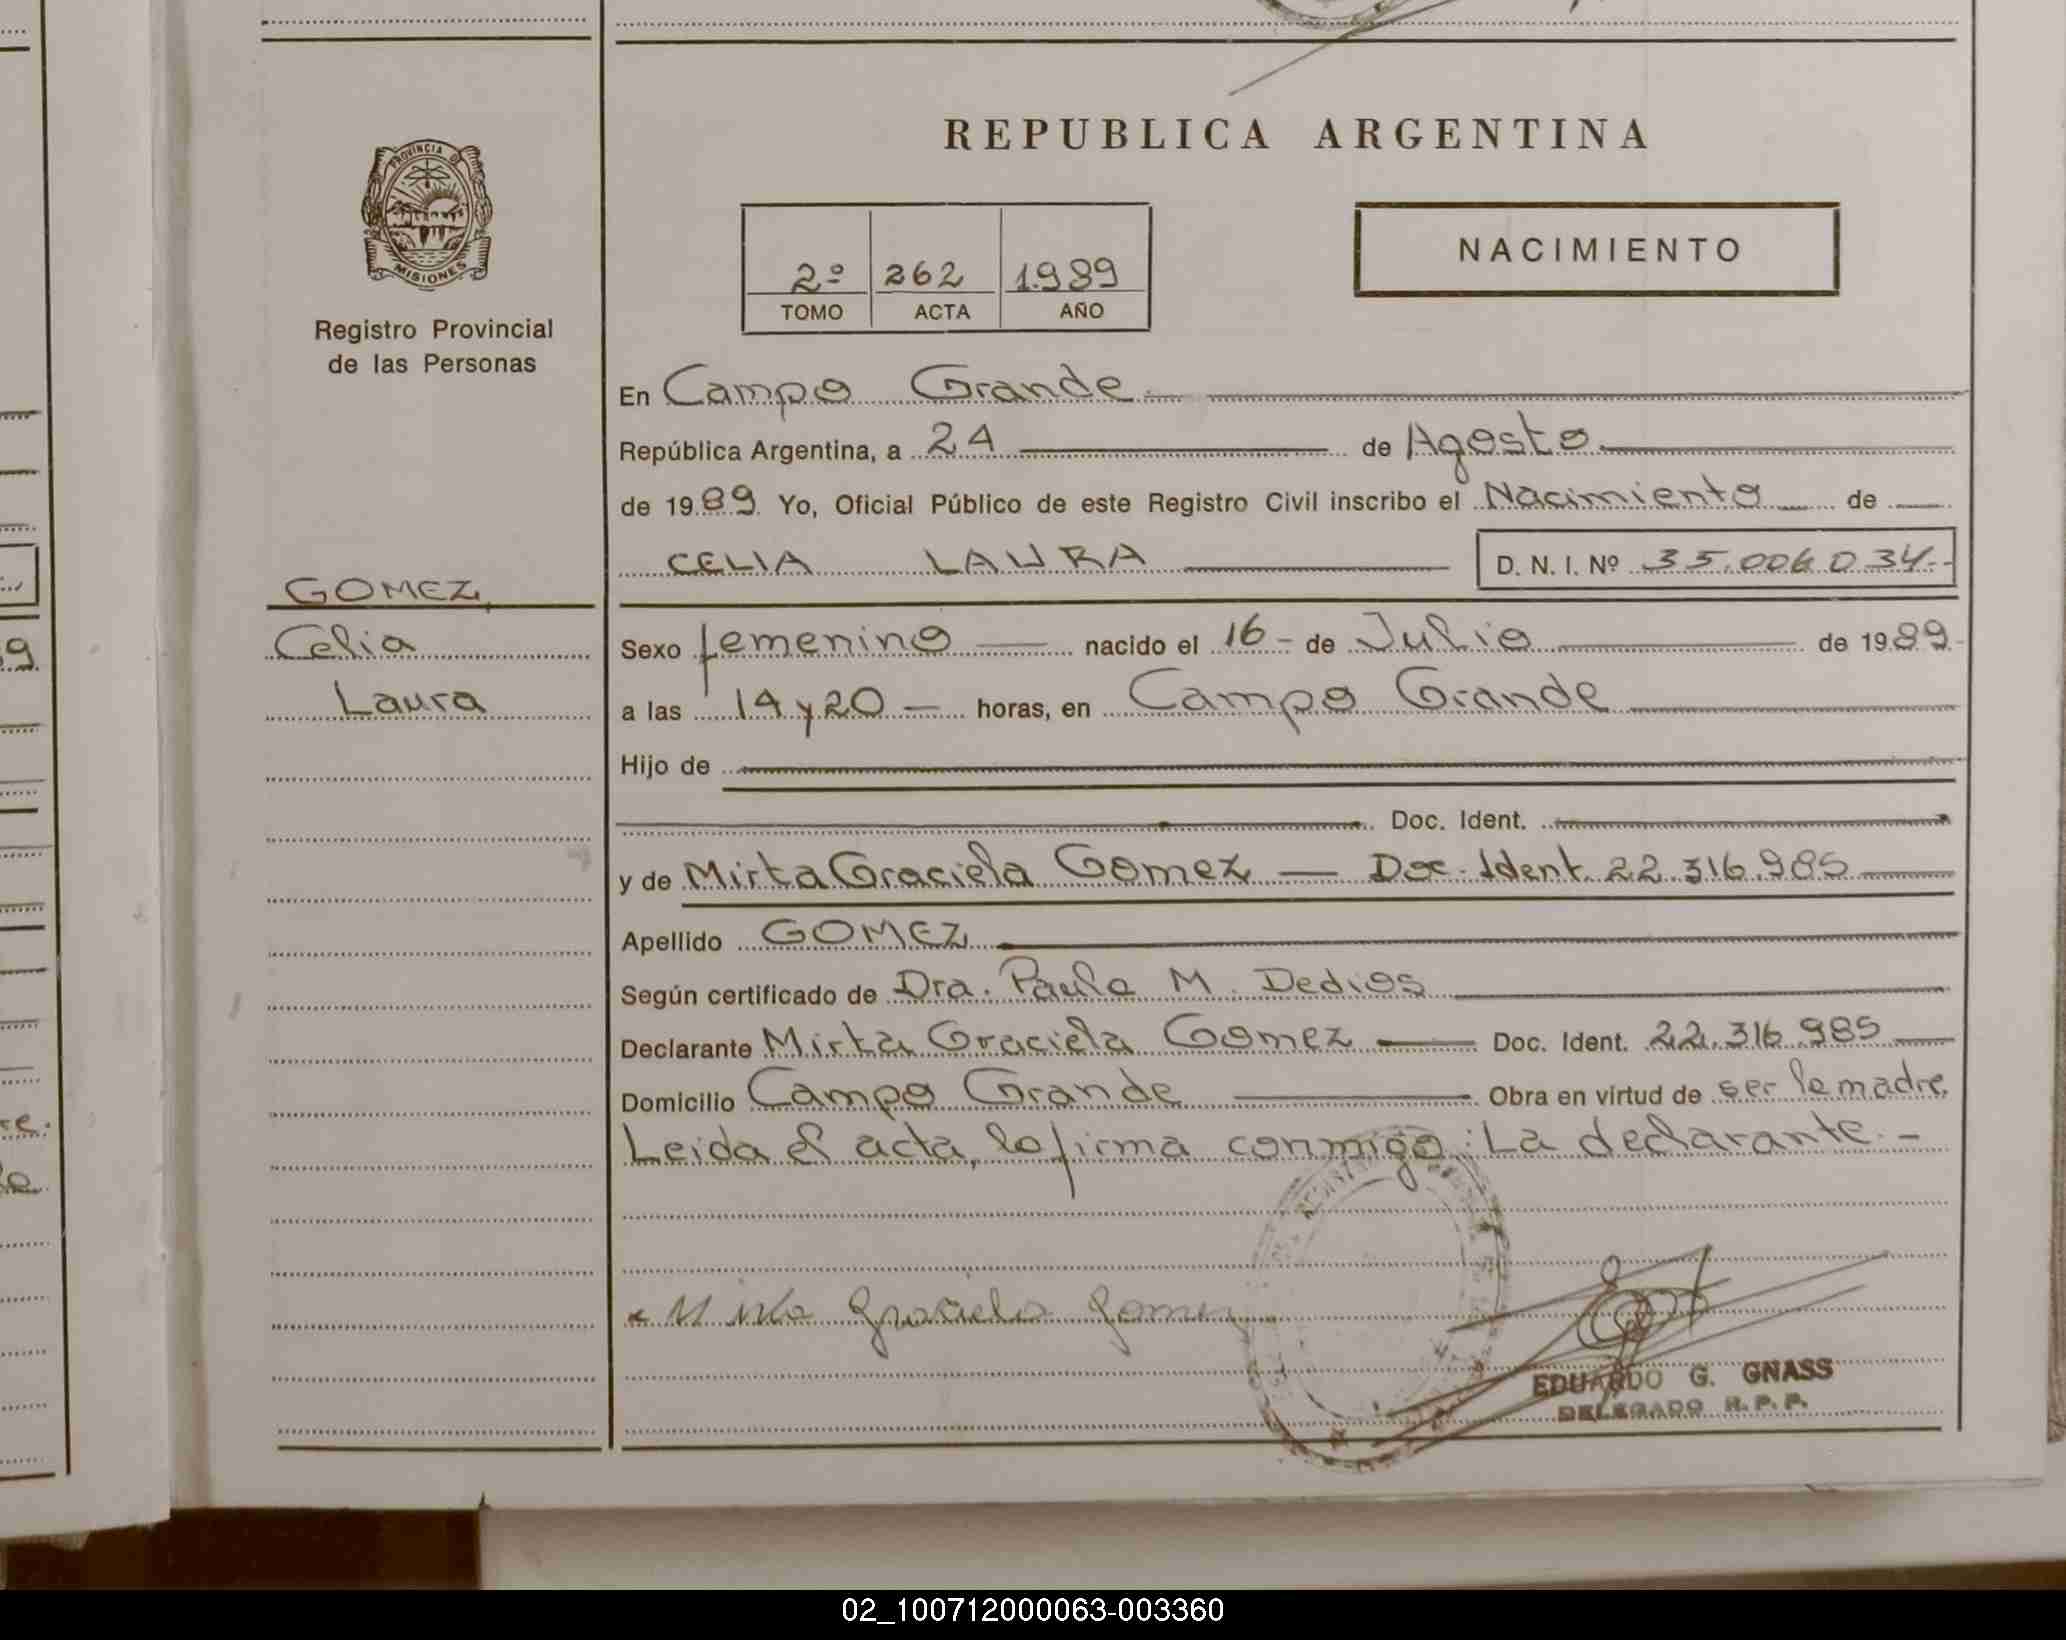 REPUBLICA ARGENTINA
PROVINCIA DE
MISIONES
Registro Provincial
de las Personas
2º 262 1.989
TOMO ACTA AÑO
NACIMIENTO
En Campo Grande
República Argentina, a 24 de Agosto
de 1989 Yo, Oficial Público de este Registro Civil inscribo el Nacimiento de
CELIA LAURA D. N. I. Nº 35.006.034
GOMEZ,
Celia
Laura
Sexo femenino nacido el 16 - de Julio de 1989
a las 14 y 20 horas, en Campo Grande
Hijo de
Doc. Ident.
y de Mirta Graciela Gomez — Doc. Ident. 22.316.985
Apellido GOMEZ
Según certificado de Dra. Paula M. Dedios
Declarante Mirta Graciela Gomez — Doc. Ident. 22.316.985
Domicilio Campo Grande Obra en virtud de ser la madre.
Leida el acta, la firma conmigo: La declarante. -
Mirta Graciela Gomez
EDUARDO G. GNASS
DELEGADO R. P. P.
02_100712000063-003360